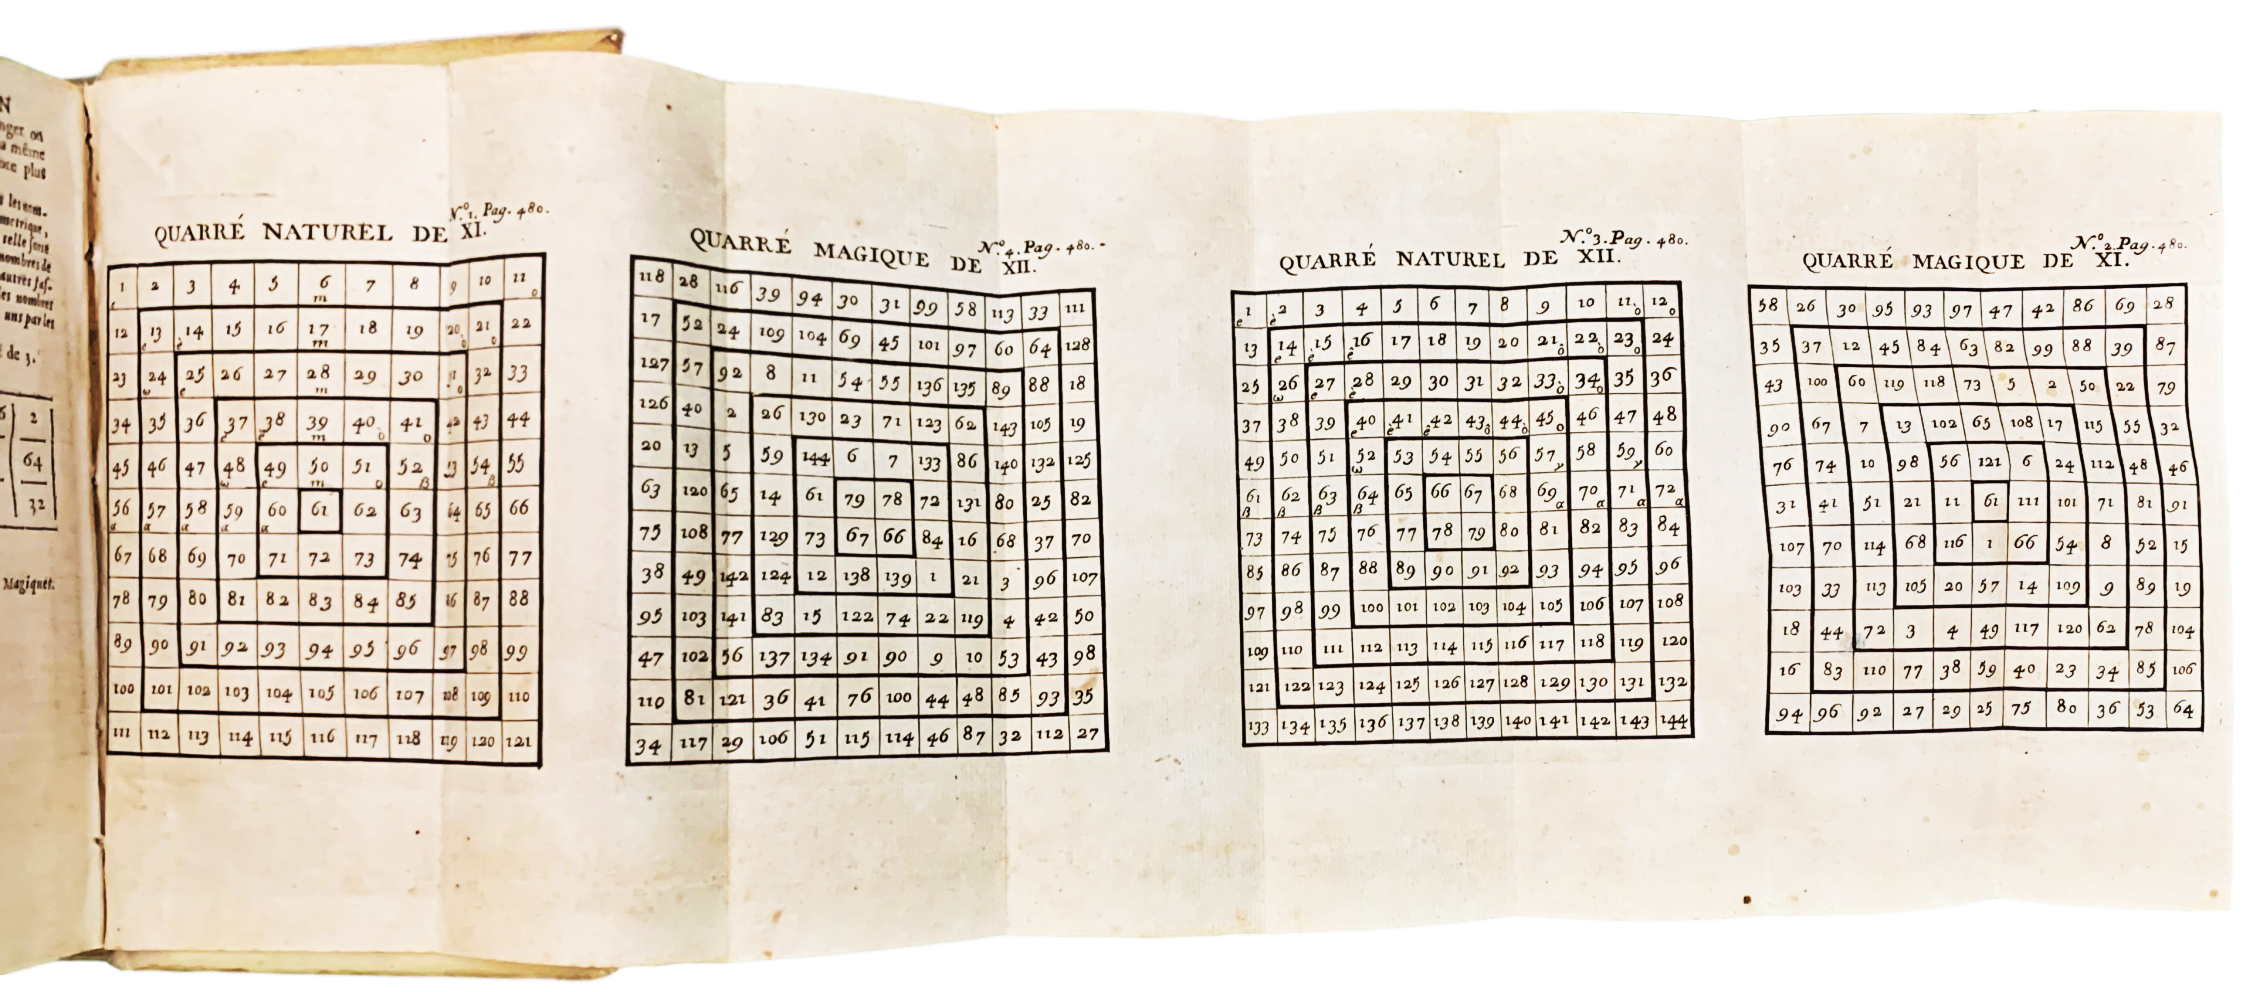 N
nger on
a même
bre plus
metrique,
nombres de
les nombres
uns par les
de 3.
6 2
64
32
Magiques.
N.º 1. Pag. 480.
QUARRÉ NATUREL DE XI.
1 e 2 3 4 5 6 m 7 8 9 10 11 o
12 13 e 14 e 15 16 17 m 18 19 20 o 21 o 22
23 24 ω 25 e 26 27 28 m 29 30 31 o 32 33
34 35 36 37 e 38 e 39 m 40 o 41 o 42 43 44
45 46 47 48 ω 49 e 50 m 51 o 52 β 53 54 β 55
56 α 57 α 58 α 59 α 60 α 61 62 63 64 65 66
67 68 69 70 71 72 73 74 75 76 77
78 79 80 81 82 83 84 85 86 87 88
89 90 91 92 93 94 95 96 97 98 99
100 101 102 103 104 105 106 107 108 109 110
111 112 113 114 115 116 117 118 119 120 121
N.º 4. Pag. 480.
QUARRÉ MAGIQUE DE XII.
118 28 116 39 94 30 31 99 58 113 33 111
17 52 24 109 104 69 45 101 97 60 64 128
127 57 92 8 11 54 55 136 135 89 88 18
126 40 2 26 130 23 71 123 62 143 105 19
20 13 5 59 144 6 7 133 86 140 132 125
63 120 65 14 61 79 78 72 131 80 25 82
75 108 77 129 73 67 66 84 16 68 37 70
38 49 142 124 12 138 139 1 21 3 96 107
95 103 141 83 15 122 74 22 119 4 42 50
47 102 56 137 134 91 90 9 10 53 43 98
110 81 121 36 41 76 100 44 48 85 93 35
34 117 29 106 51 115 114 46 87 32 112 27
N.º 3. Pag. 480.
QUARRÉ NATUREL DE XII.
1 e 2 e 3 4 5 6 7 8 9 10 11 o 12 o
13 14 e 15 e 16 e 17 18 19 20 21 o 22 o 23 o 24
25 26 ω 27 e 28 e 29 30 31 32 33 o 34 o 35 36
37 38 39 40 e 41 e 42 e 43 o 44 o 45 o 46 47 48
49 50 51 52 ω 53 54 55 56 57 γ 58 59 γ 60
61 β 62 β 63 β 64 β 65 66 67 68 69 α 70 α 71 α 72 α
73 74 75 76 77 78 79 80 81 82 83 84
85 86 87 88 89 90 91 92 93 94 95 96
97 98 99 100 101 102 103 104 105 106 107 108
109 110 111 112 113 114 115 116 117 118 119 120
121 122 123 124 125 126 127 128 129 130 131 132
133 134 135 136 137 138 139 140 141 142 143 144
N.º 2. Pag. 480.
QUARRÉ MAGIQUE DE XI.
58 26 30 95 93 97 47 42 86 69 28
35 37 12 45 84 63 82 99 88 39 87
43 100 60 119 118 73 5 2 50 22 79
90 67 7 13 102 65 108 17 115 55 32
76 74 10 98 56 121 6 24 112 48 46
31 41 51 21 11 61 111 101 71 81 91
107 70 114 68 116 1 66 54 8 52 15
103 33 113 105 20 57 14 109 9 89 19
18 44 72 3 4 49 117 120 62 78 104
16 83 110 77 38 59 40 23 34 85 106
94 96 92 27 29 25 75 80 36 53 64